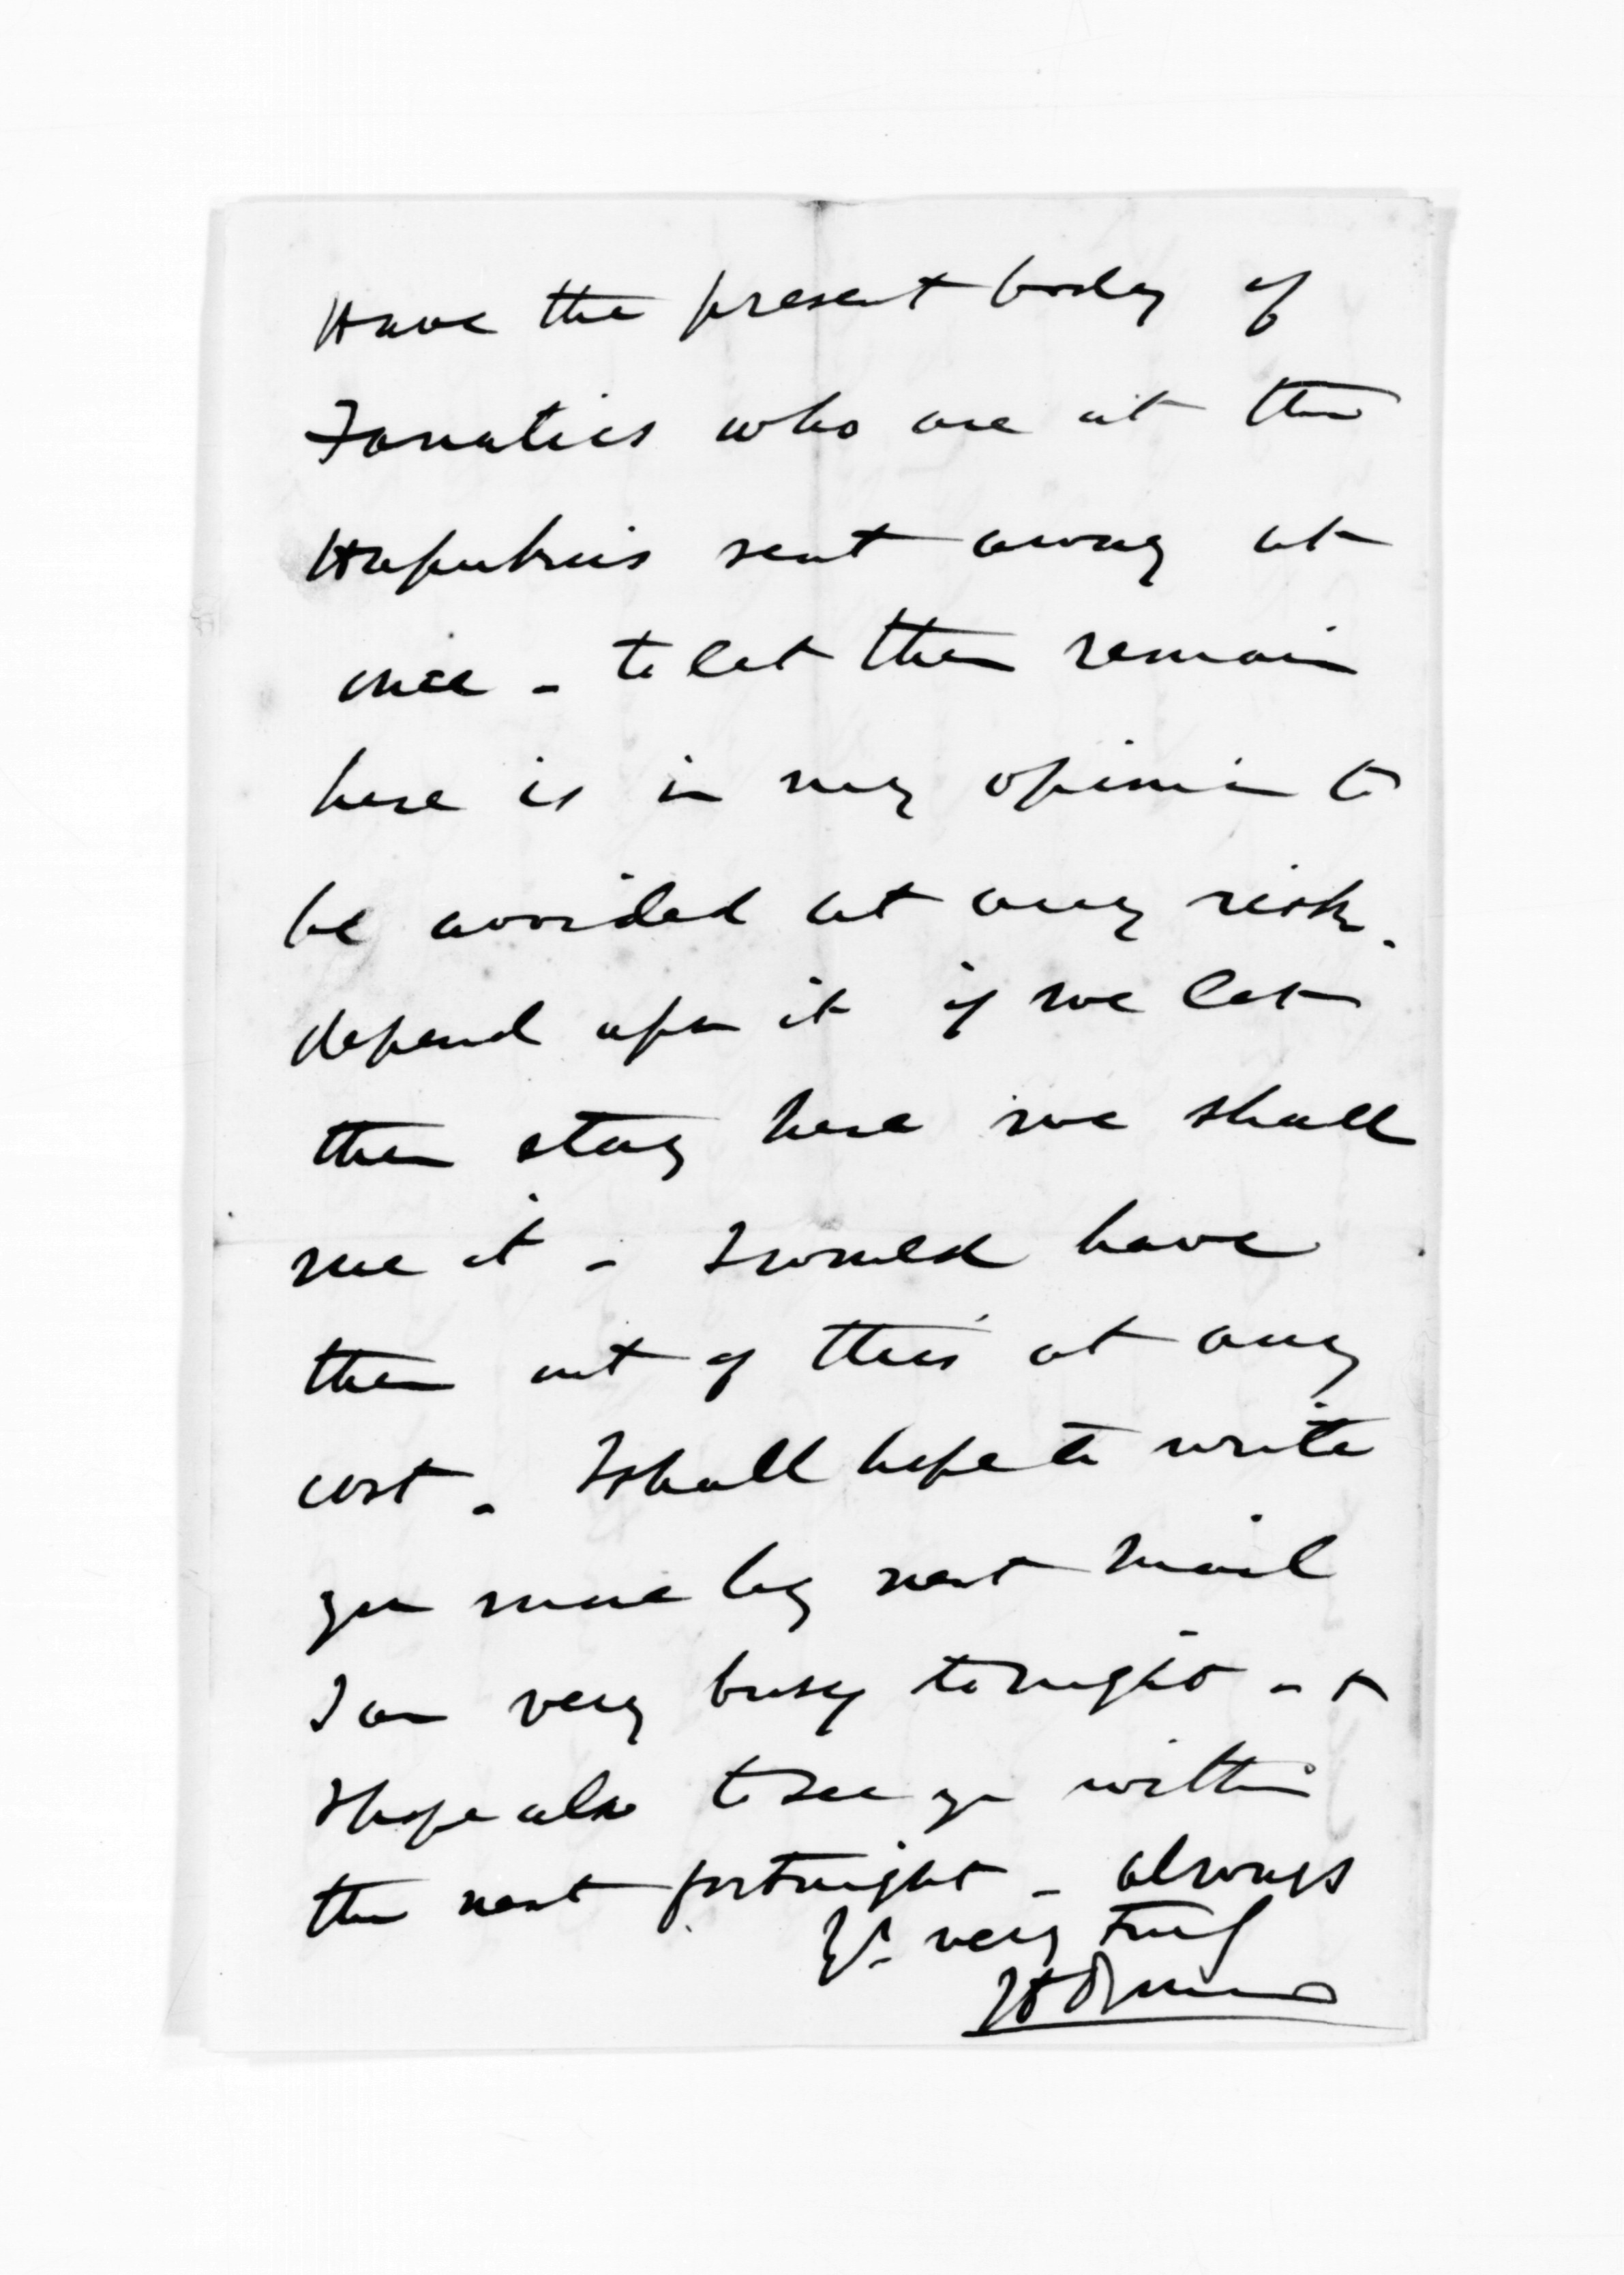 Have the present body of
Fanatics who are at the
Hapukus sent away at
once - to let them remain
here is in my opinion to
be avoided at any risk.
depend upon it if we let
them stay here we shall
rue it - I would have
them out of this at any
cost - I shall hope to write
you more by next mail
I am very busy tonight - &
I hope also to see you within
the next fortnight - always
Yrs very truly